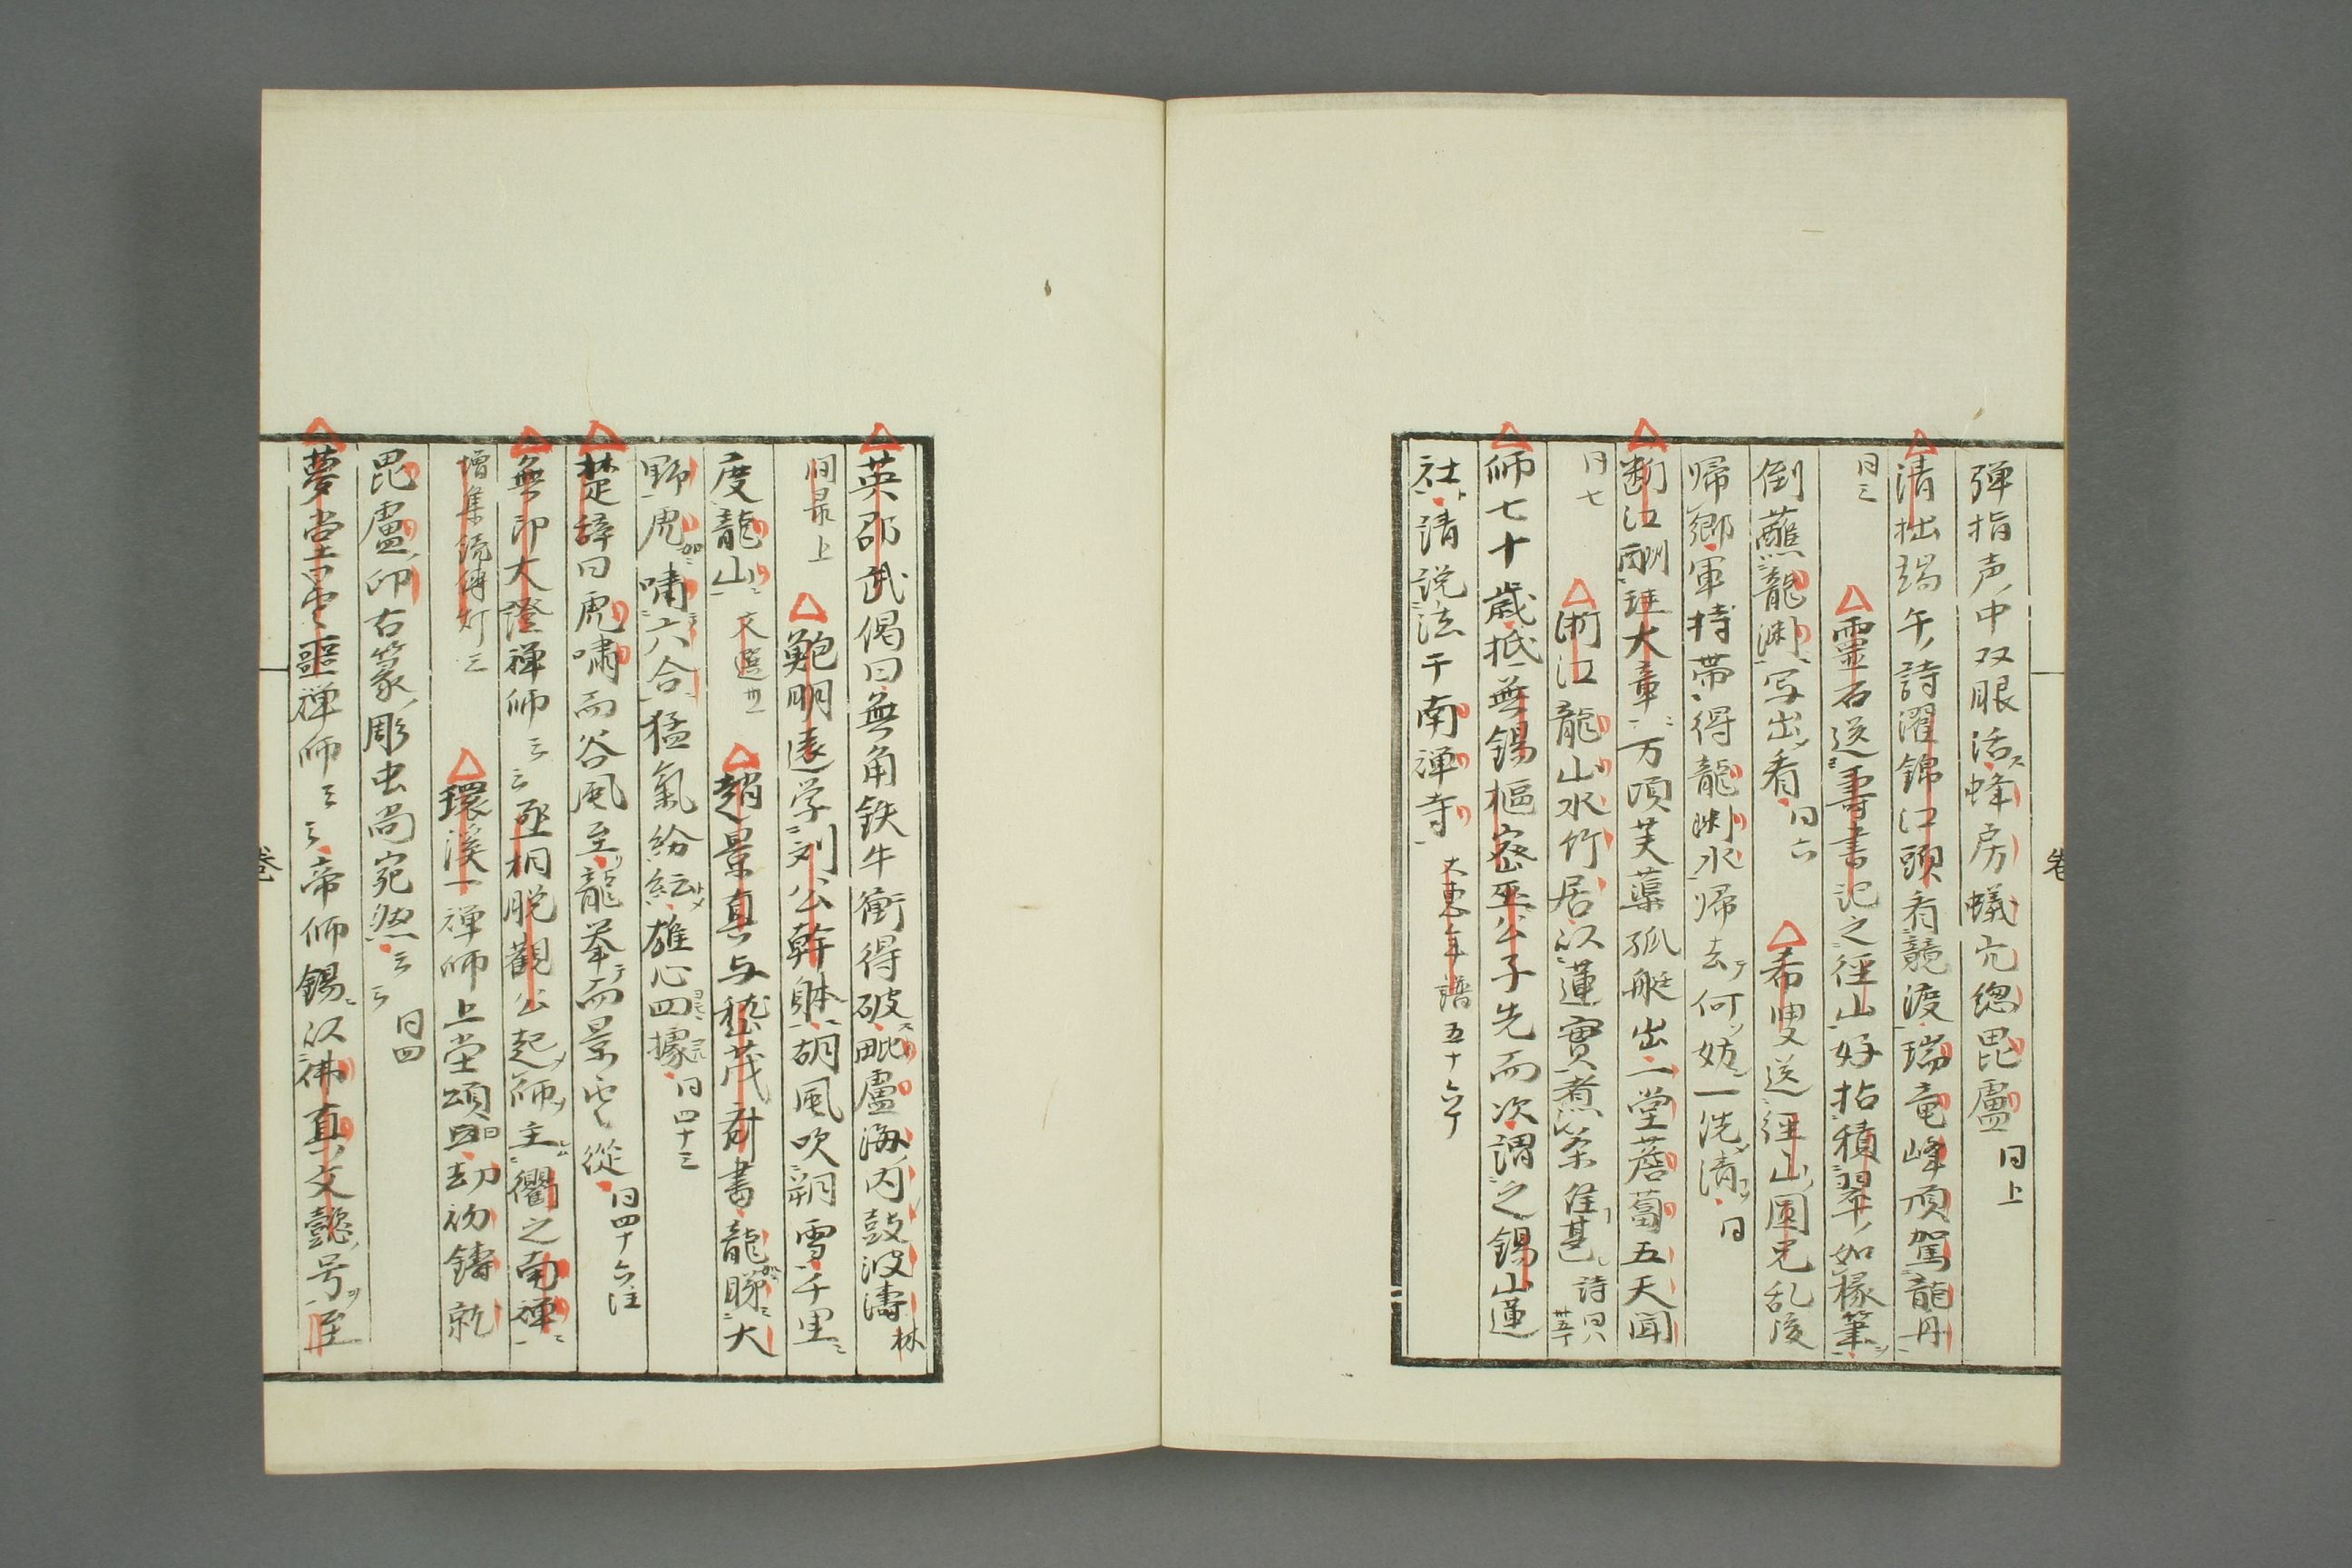 弾指声中双眼活蜂房蟻穴總毘盧 同上
清拙端午詩濯錦江頭看競渡瑞竜峰頂駕龍丹
同三 靈石送壽書記之徑山好拈積翠如椽筆
倒蘸龍渊写出看 同六 希叟送徑山圓兄乱後
帰郷軍持帯得龍渊水帰去何妨一洗清 同
断江酬珪大章万頃芙蕖孤艇出一堂薝蔔五天聞
同七 浙江龍山水竹居以蓮實煮茶佳甚 詩
師七十歳抵無錫樞密巫公子先而次謂之錫山蓮
社請説法于南禅寺 大惠年譜五十六丁
英邵武偈曰無角鉄牛衝得破毗盧海内鼓波濤 林
間录上 鮑明遠学刘公幹躰胡風吹朔雪千里
度龍山 文選卅一 趙景真与嵇茂齊書龍睇大
野虎嘯六合猛氣紛紜雄心四據 同四十三
楚辞曰虎嘯而谷風至龍举而景雲從 同四十六注
無印大證禅師云云亟相脱觀公起師主衢之南禅
増集続傳灯三 環溪一禅師上堂頌曰劫初鑄就
毘盧印古篆彫虫尚宛然云云 同四
夢堂曇噩禅師云云帝師錫以佛真文懿号至